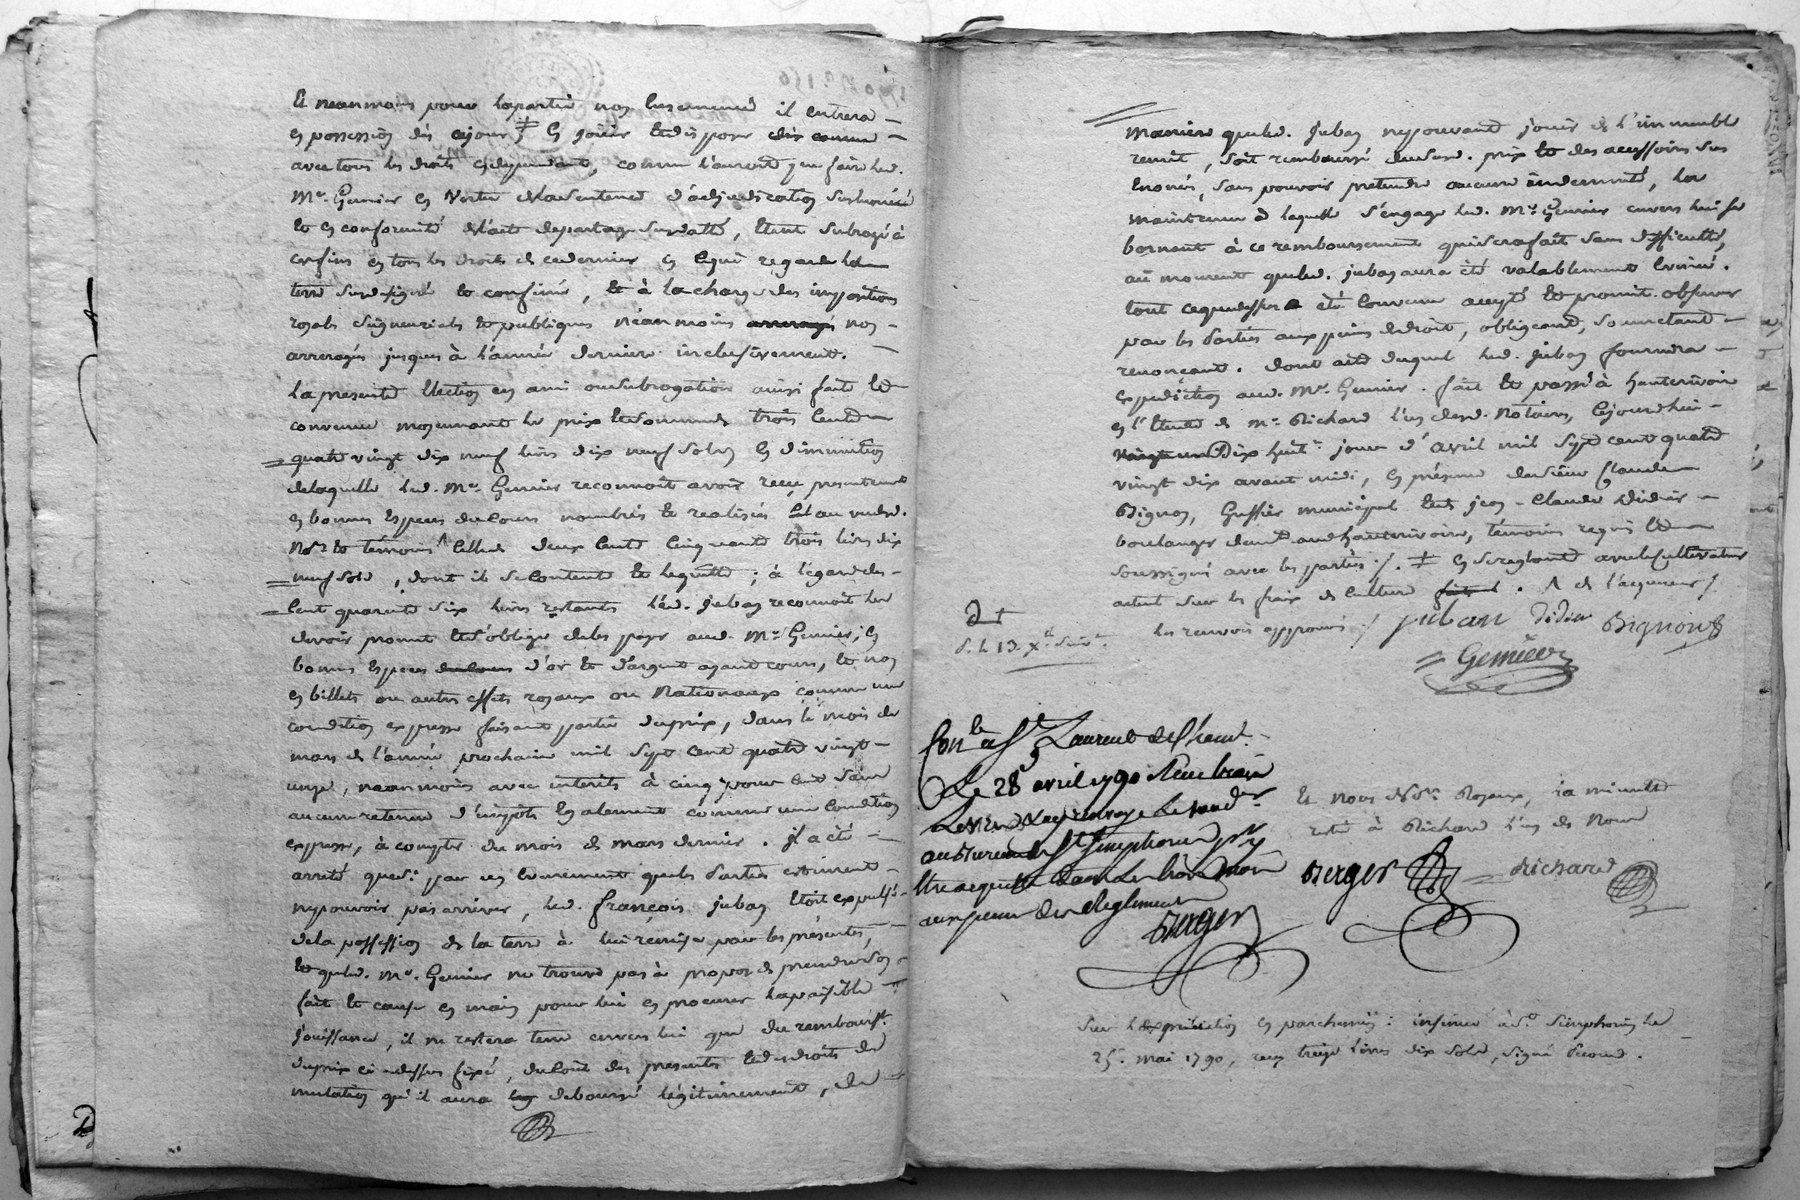 Et néanmoins pour la partie non ensemencée il entrera
en possession dès ce jour ‡ en jouir et disposer
avec tous les droits en dépendant, comme l'auroit pu faire led.
Me. Gemier en vertu de la sentence d'adjudication susénoncée
et en conformité de l'acte de partage susdatté, étant subrogé à
ces fins en tous les droits de ce dernier en ce qui regarde la
terre sus désignée et confinée, et à la charge des impositions
royales seigneuriales et publiques néanmoins non
arreragés jusques à l'année dernière inclusivement.
la presente élection en ami ou subrogation ainsi faite et
convenue moyennant le prix et somme de trois cent
quatre vingt dix neuf livres dix neuf sols, en diminution
de laquelle led. Me. Gemier reconnoit avoir reçu presentement
en bonnes especes du cours nombrés et realisés et au vu desd.
Nres. et témoins ^ celle de deux cent cinquante trois livres dix
neuf sols, dont il se contente et le quitte ; à l'égard des
cent quarante six livres restantes led. juban reconnoit les
devoir promet et s'oblige de les payer aud. Me. Gemier, en
bonnes especes d'or et d'argent ayant cours, et non
en billets ou autres effets royaux ou nationaux comme une
condition expresse faisant partie du prix, dans le mois de
mars de l'année prochaine mil sept cent quatre vingt
onze, néanmoins avec interêts à cinq pour cent sans
aucune retenue d'impôts également comme une condition
expresse, à compter du mois de mars dernier. il a été
arrêté que si par un évenement que les parties estiment
ne pouvoir pas arriver, led. françois juban étoit expulsé
de la possession de la terre à lui remise par les présentes,
et que led. Me. Gemier ne trouve pas à propos de prendre son
fait et cause en main pour lui en procurer la paisible
jouissance, il ne restera tenu envers lui que du rembourst.
du prix ci dessus fixé, du coût des presentes et des droits de
mutation qu'il aura deboursé légitimement, de
maniere que led. juban ne pouvant jouir de l'immeuble
remit, soit remboursé dud. prix et des accessoires sus
énoncés, sans pouvoir pretendre aucune indemnité, la
maintenue à laquelle s'engage led. Me. Gemier envers lui se
bornant à ce remboursement qui sera fait sans difficulté,
au moment que led. juban aura été valablement évincé.
tout ce que dessus a été convenu accepté et promit observer
par les parties aux peines de droit, obligeant, soumettant
renonçant. dont acte duquel led. juban fournira
expédition aud. Me. Gemier. fait et passé à hauterivoire
en l'étude de Me. Richard l'un desd. Notaires, le jourd'hui
Dix huite. jour d'avril mil sept cent quatre
vingt dix avant midi, en présence de sieur Claude
Bignon, Greffier municipal et sr. jean-Claude Didier
boulanger demt. aud. hauterivoire, témoins requis et
soussignés avec les parties ./. ‡ en se reglant avec le cultivateur
actuel sur les frais de culture . ^ de l'acquereur /.
les renvois approuvés ./ juban Didier Bignon
Gemier
Conle. à St. Laurent de Chamt.
Le 28 avril 1790
au Bureau de St. Simphorien
aux peines des Reglements
Berger
Et nous Nres. Royaux, la minute
resté à Richard l'un de Nous
Berger Richard
Sur l'expédition en parchemin : insinué à St. Simphorien le
25e. mai 1790, reçu treize livres dix sols, signé Second.